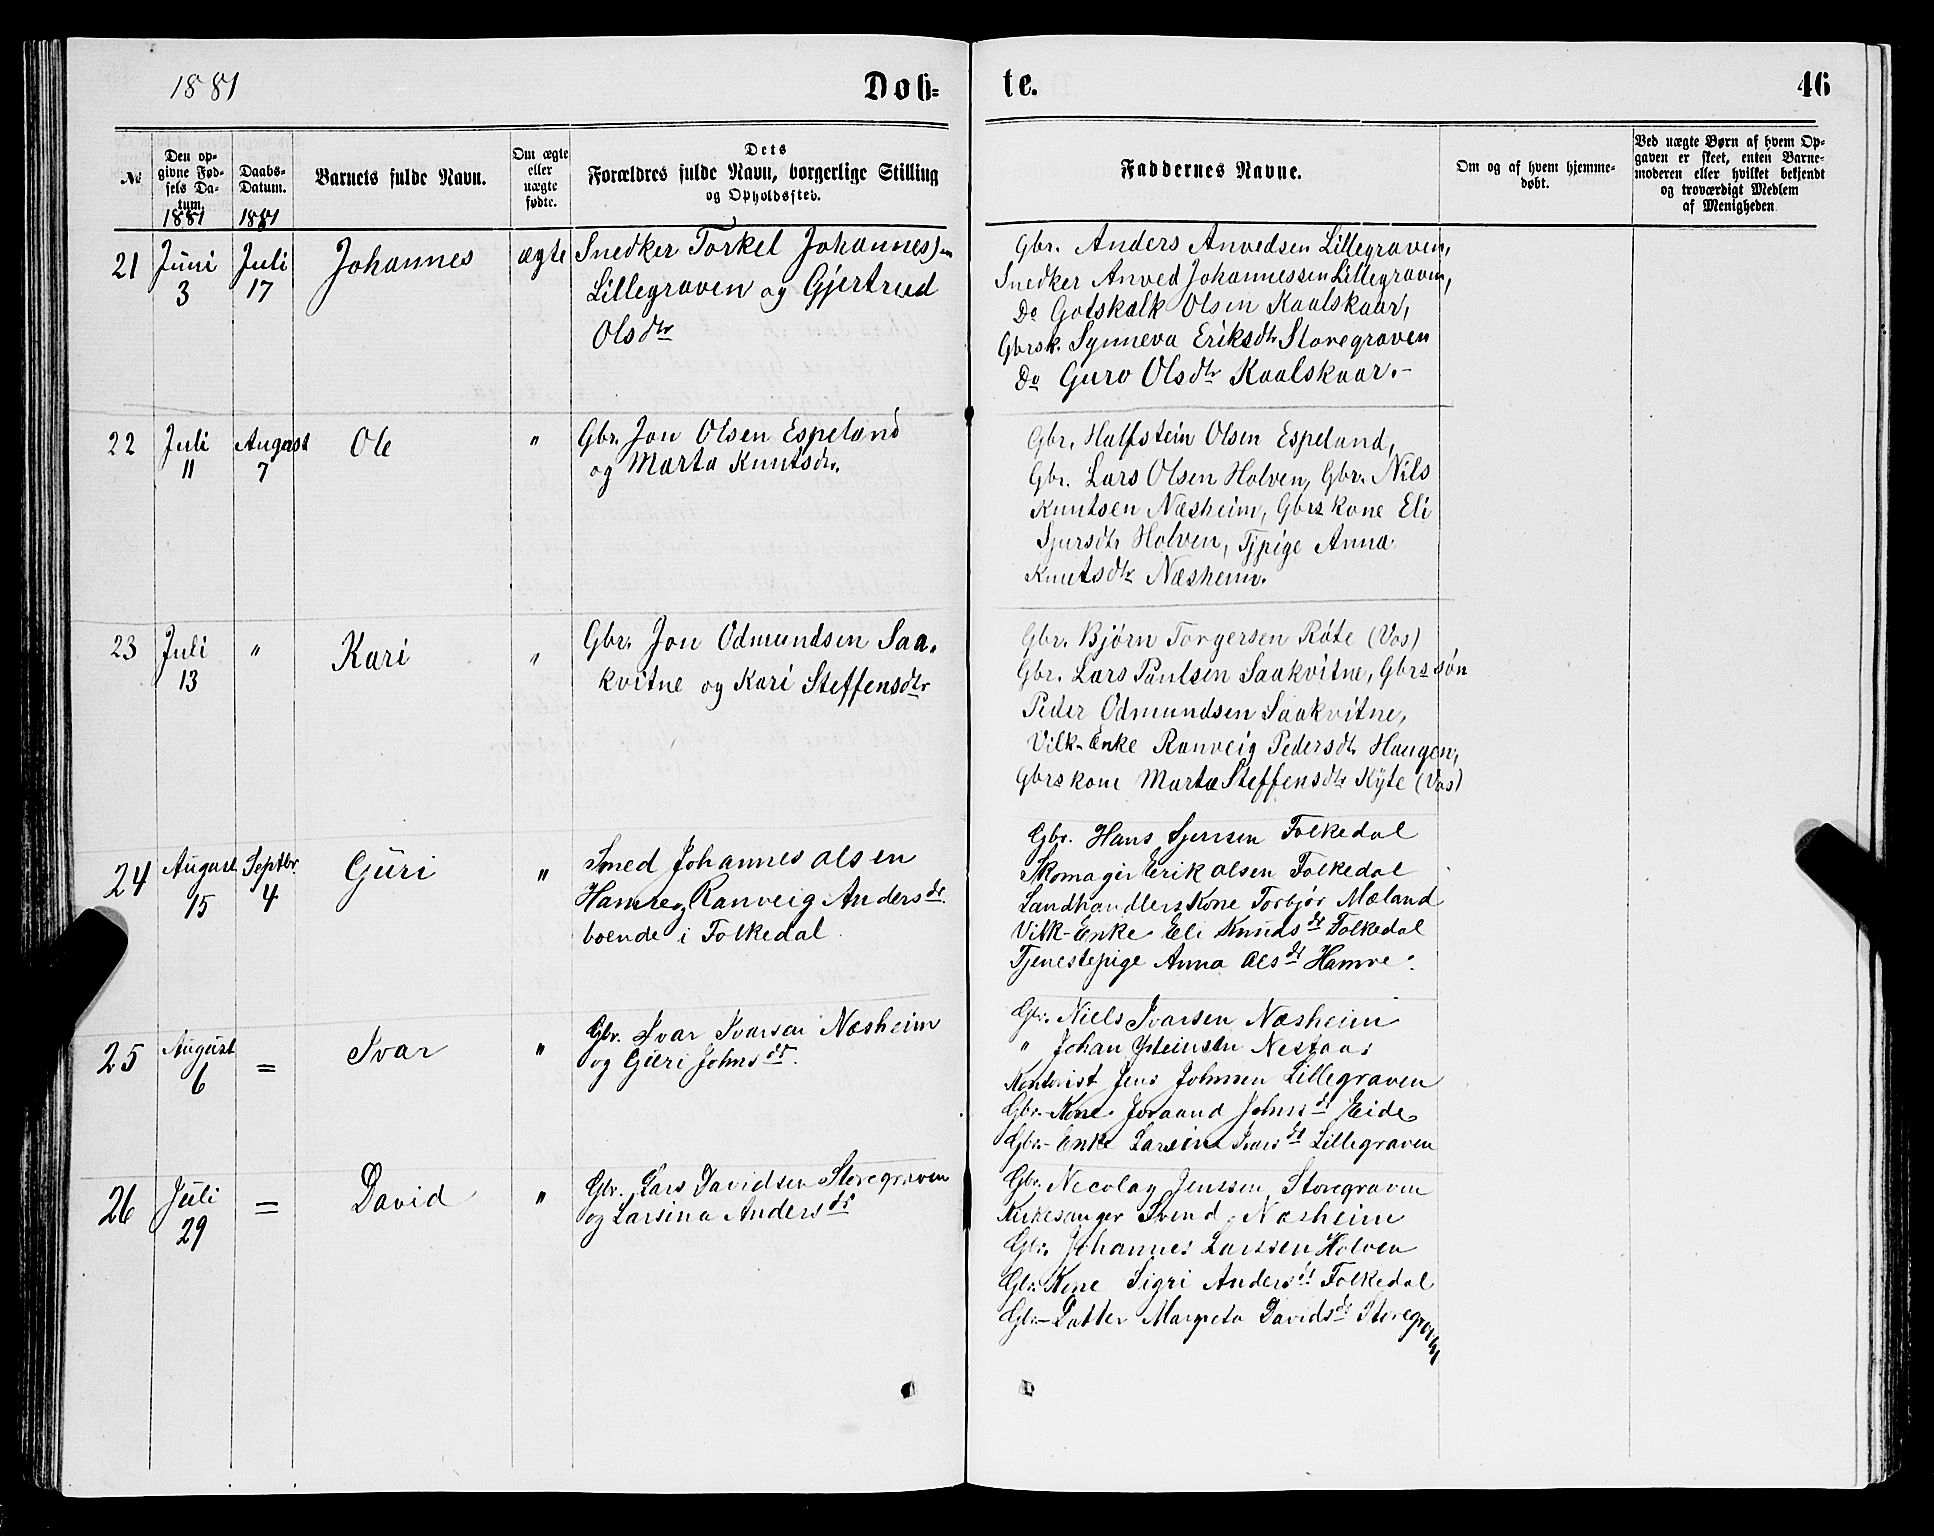 1881
Døb-
te.
46
No
Den op-
givne Fød-
sels Da-
tum.
1881
Daabs-
Datum.
1881
Barnets fulde Navn.
Om ægte
eller
uægte
fødte.
Dets
Forældres fulde Navn, borgerlige Stilling
og Opholdssted.
Faddernes Navne.
Om og af hvem hjemme-
døbt.
Ved uægte Børn af hvem Op-
gaven er skeet, enten Barne-
moderen eller hvilket bekjendt
og troværdigt Medlem
af Menigheden
21
Juni
3
Juli
17
Johannes
ægte
Snedker Torkel Johannessen
Lillegraven og Gjertrud
Olsdtr
Gbr. Anders Anvedsen Lillegraven,
Snedker Anved Johannessen Lillegraven,
Do Gotskalk Olsen Kaalskaar,
Gbrsk. Synneva Eriksdtr Storegraven
Do Guro Olsdtr Kaalskaar.-
22
Juli
11
August
7
Ole
"
Gbr. Jon Olsen Espeland
og Marta Knutsdtr.
Gbr. Halfstein Olsen Espeland,
Gbr. Lars Olsen Holven, Gbr. Nils
Knutsen Næsheim, Gbrskone Eli
Sjursdtr Holven, Tjpige Anna
Knutsdtr Næsheim.
23
Juli
13
"
Kari
"
Gbr. Jon Odmundsen Saa-
kvitne og Kari Steffensdtr
Gbr. Bjørn Torgersen Røte (Vos)
Gbr. Lars Paulsen Saakvitne, Gbrssøn
Peder Odmundsen Saakvitne,
Vilk-Enke Ranveig Pedersdtr Haugen,
Gbrskone Marta Steffensdtr Kyte (Vos)
24
August
15
Septbr.
4
Guri
"
Smed Johannes Olsen
Hamre og Ranveig Andersdt.
boende i Folkedal.
Gbr. Hans Sjursen Folkedal
Skomager Erik Olsen Folkedal
Landhandlers Kone Torbjør Mæland
Vilk-Enke Eli Knudsdt Folkedal
Tjenestepige Anna Olsdt Hamre.
25
August
6
=
Ivar
"
Gbr. Ivar Ivarsen Næsheim
og Guri Johnsdt.
Gbr. Niels Ivarsen Næsheim
" Johan Nestaas
Kontorist Jens Johnsen Lillegraven
Gbr-Kone Joraand Johnsdt Eide
Gbr-Enke Larsina Ivarsdt Lillegraven
26
Juli
29
=
David
"
Gbr. Lars Davidsen Storegraven
og Larsina Andersdt
Gbr. Necolay Jenssen Storegraven
Kirkesanger Svend Næsheim
Gbr. Johannes Larssen Holven
Gbr. Kone Sigri Andersdt Folkedal
Gbr-Datter Margreta Davidsdt Storegraven